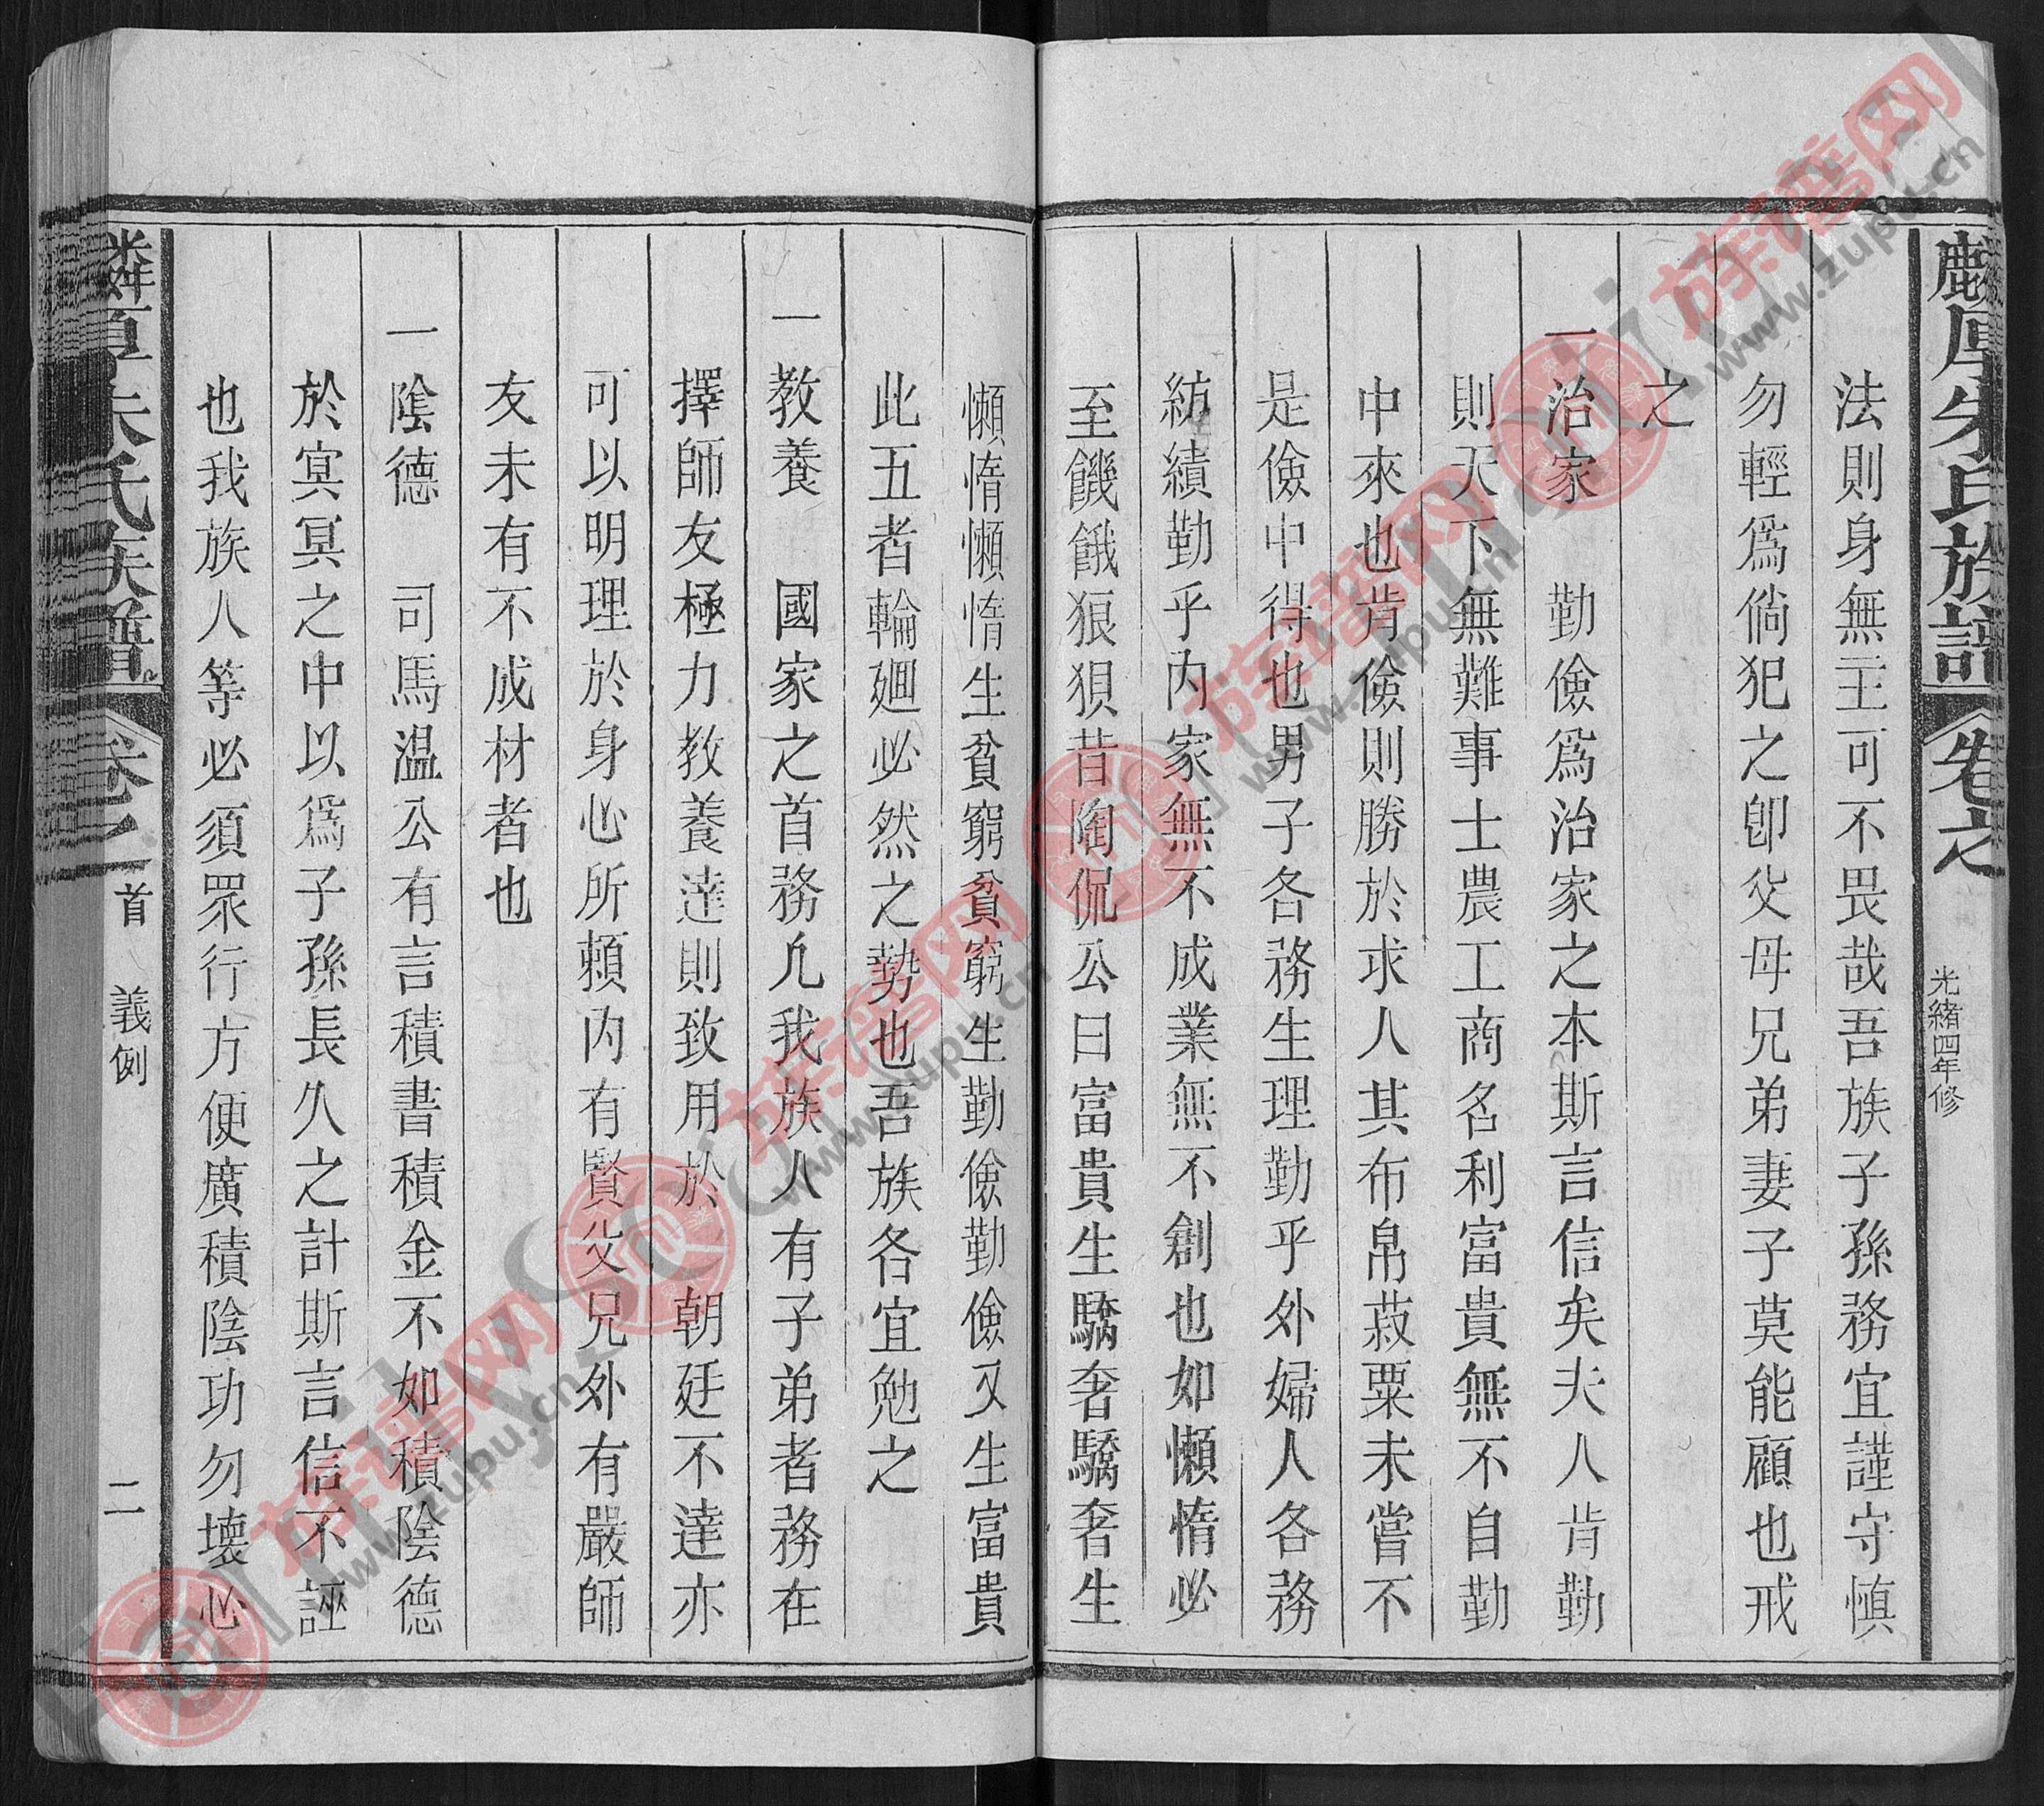 法則身無主可不畏哉吾族子孫務宜謹守慎
勿輕爲倘犯之卽父母兄弟妻子莫能顧也戒
之
一治家　勤儉爲治家之本斯言信矣夫人肯勤
則天下無難事士農工商名利富貴無不自勤
中來也肯儉則勝於求人其布帛菽粟未嘗不
是儉中得也男子各務生理勤乎外婦人各務
紡績勤乎內家無不成業無不創也如懶惰必
至饑餓狼狽昔陶侃公曰富貴生驕奢驕奢生
懶惰懶惰生貧窮貧窮生勤儉勤儉又生富貴
此五者輪廻必然之勢也吾族各宜勉之
一教養　國家之首務凡我族人有子弟者務在
擇師友極力教養達則致用於　朝廷不達亦
可以明理於身心所賴內有賢父兄外有嚴師
友未有不成材者也
一陰德　司馬温公有言積書積金不如積陰德
於冥冥之中以爲子孫長久之計斯言信不誣
也我族人等必須眾行方便廣積陰功勿壞必
朱氏族譜
卷之
光緒四年修
朱氏族譜
卷之
首
義例
二
族谱网
www.zupu.cn
族谱网
www.zupu.cn
族谱网
www.zupu.cn
族谱网
www.zupu.cn